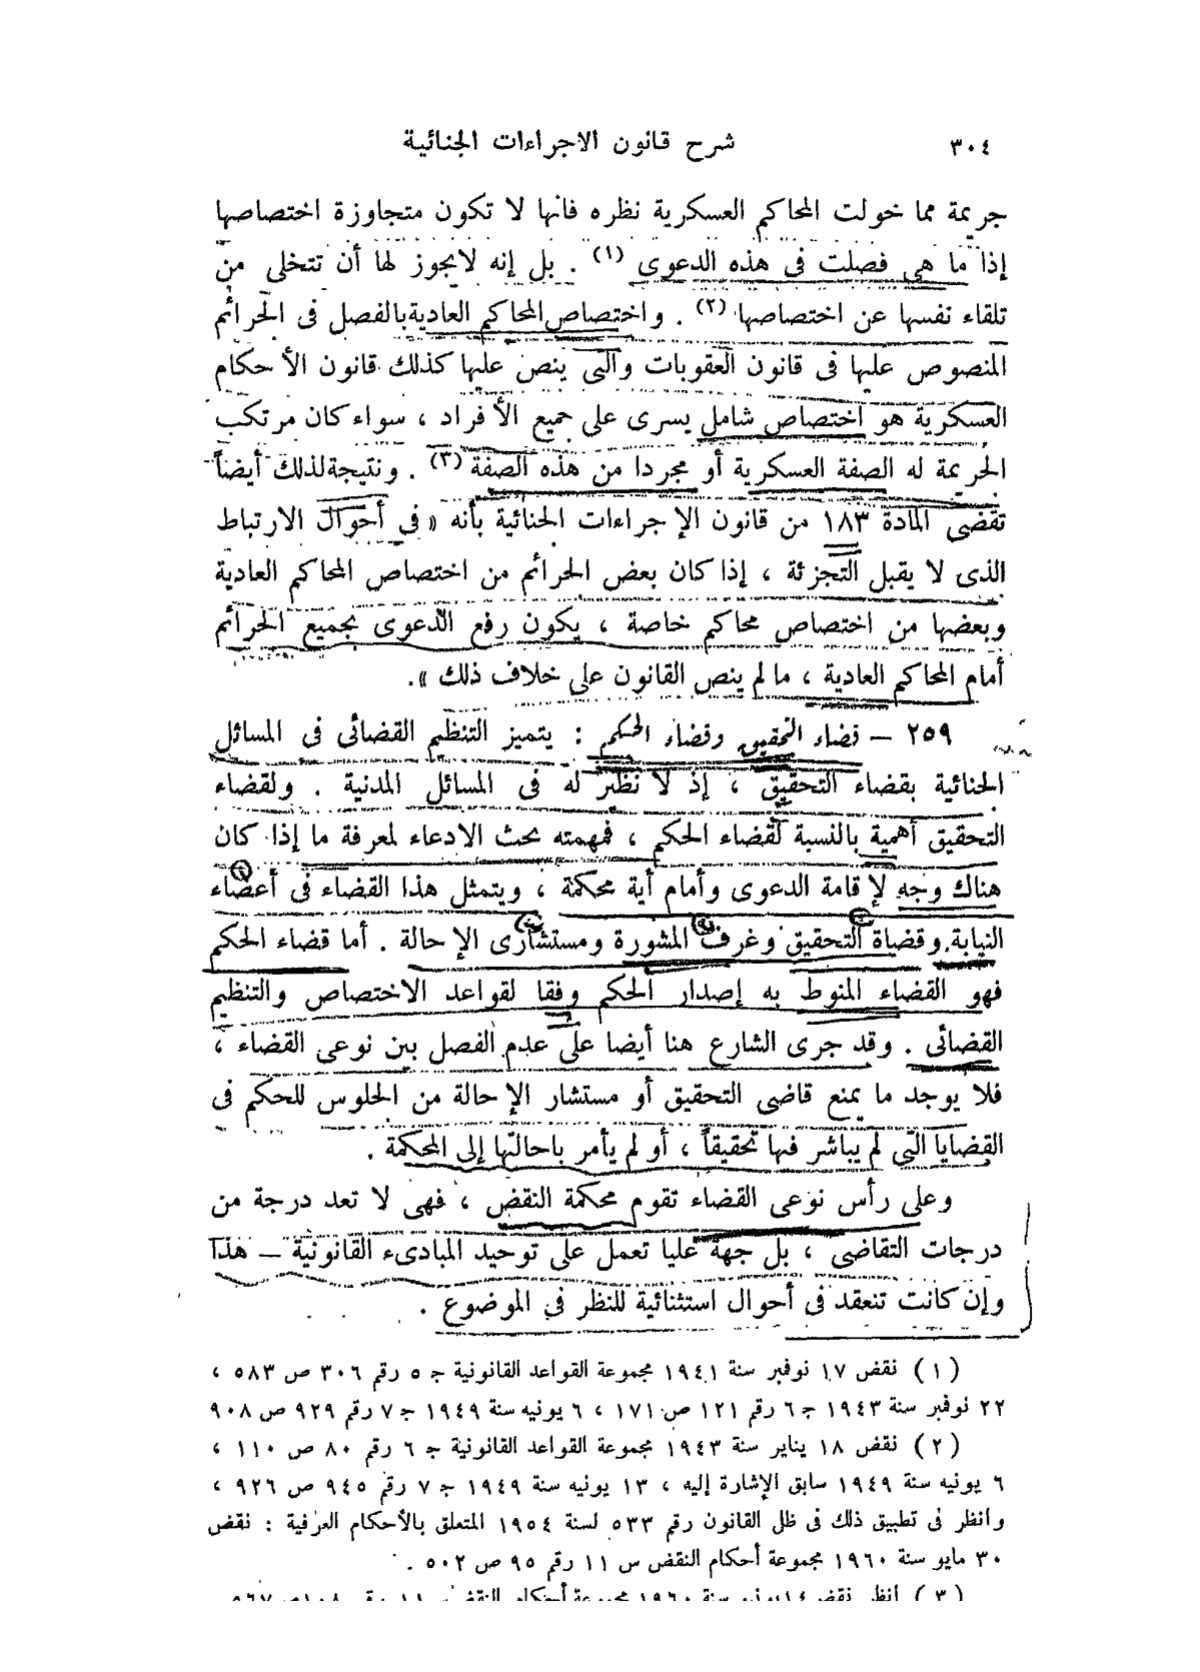 ٣٠٤
شرح قانون الاجراءات الجنائية
جريمة مما خولت المحاكم العسكرية نظره فانها لا تكون متجاوزة اختصاصها
إذا ما هى فصلت فى هذه الدعوى (١) . بل إنه لايجوز لها أن تتخلى من
تلقاء نفسها عن اختصاصها (٢) . واختصاص المحاكم العادية بالفصل فى الجرائم
المنصوص عليها فى قانون العقوبات والتى ينص عليها كذلك قانون الأحكام
العسكرية هو اختصاص شامل يسرى على جميع الأفراد ، سواء كان مرتكب
الجريمة له الصفة العسكرية أو مجردا من هذه الصفة (٣) . ونتيجة لذلك أيضاً
تقضى المادة ١٨٣ من قانون الإجراءات الجنائية بأنه « فى أحوال الارتباط
الذى لا يقبل التجزئة ، إذا كان بعض الجرائم من اختصاص المحاكم العادية
وبعضها من اختصاص محاكم خاصة ، يكون رفع الدعوى بجميع الجرائم
أمام المحاكم العادية ، ما لم ينص القانون على خلاف ذلك ».
٢٥٩ – قضاء التحقيق وقضاء الحكم : يتميز التنظيم القضائى فى المسائل
الجنائية بقضاء التحقيق ، إذ لا نظير له فى المسائل المدنية . ولقضاء
التحقيق أهمية بالنسبة لقضاء الحكم ، فمهمته بحث الادعاء لمعرفة ما إذا كان
هناك وجه لإقامة الدعوى وأمام أية محكمة ، ويتمثل هذا القضاء فى أعضاء
النيابة وقضاة التحقيق وغرف المشورة ومستشارى الإحالة . أما قضاء الحكم
فهو القضاء المنوط به إصدار الحكم وفقا لقواعد الاختصاص والتنظيم
القضائى . وقد جرى الشارع هنا أيضا على عدم الفصل بين نوعى القضاء ،
فلا يوجد ما يمنع قاضى التحقيق أو مستشار الإحالة من الجلوس للحكم فى
القضايا التى لم يباشر فيها تحقيقاً ، أو لم يأمر باحالتها إلى المحكمة .
وعلى رأس نوعى القضاء تقوم محكمة النقض ، فهى لا تعد درجة من
درجات التقاضى ، بل جهة عليا تعمل على توحيد المبادىء القانونية – هذا
وإن كانت تنعقد فى أحوال استثنائية للنظر فى الموضوع .
(١) نقض ١٧ نوفمبر سنة ١٩٤١ مجموعة القواعد القانونية ج ٥ رقم ٣٠٦ ص ٥٨٣ ،
٢٢ نوفمبر سنة ١٩٤٣ ج ٦ رقم ١٢١ ص ١٧١ ، ٦ يونيه سنة ١٩٤٩ ج ٧ رقم ٩٢٩ ص ٩٠٨
(٢) نقض ١٨ يناير سنة ١٩٤٣ مجموعة القواعد القانونية ج ٦ رقم ٨٠ ص ١١٠ ،
٦ يونيه سنة ١٩٤٩ سابق الإشارة إليه ، ١٣ يونيه سنة ١٩٤٩ ج ٧ رقم ٩٤٥ ص ٩٢٦ ،
وانظر فى تطبيق ذلك فى ظل القانون رقم ٥٣٣ لسنة ١٩٥٤ المتعلق بالأحكام العرفية : نقض
٣٠ مايو سنة ١٩٦٠ مجموعة أحكام النقض س ١١ رقم ٩٥ ص ٥٠٢ .
(٣) انظر نقض ١٤ يونيه سنة ١٩٦٠ مجموعة أحكام النقض س ١١ رقم